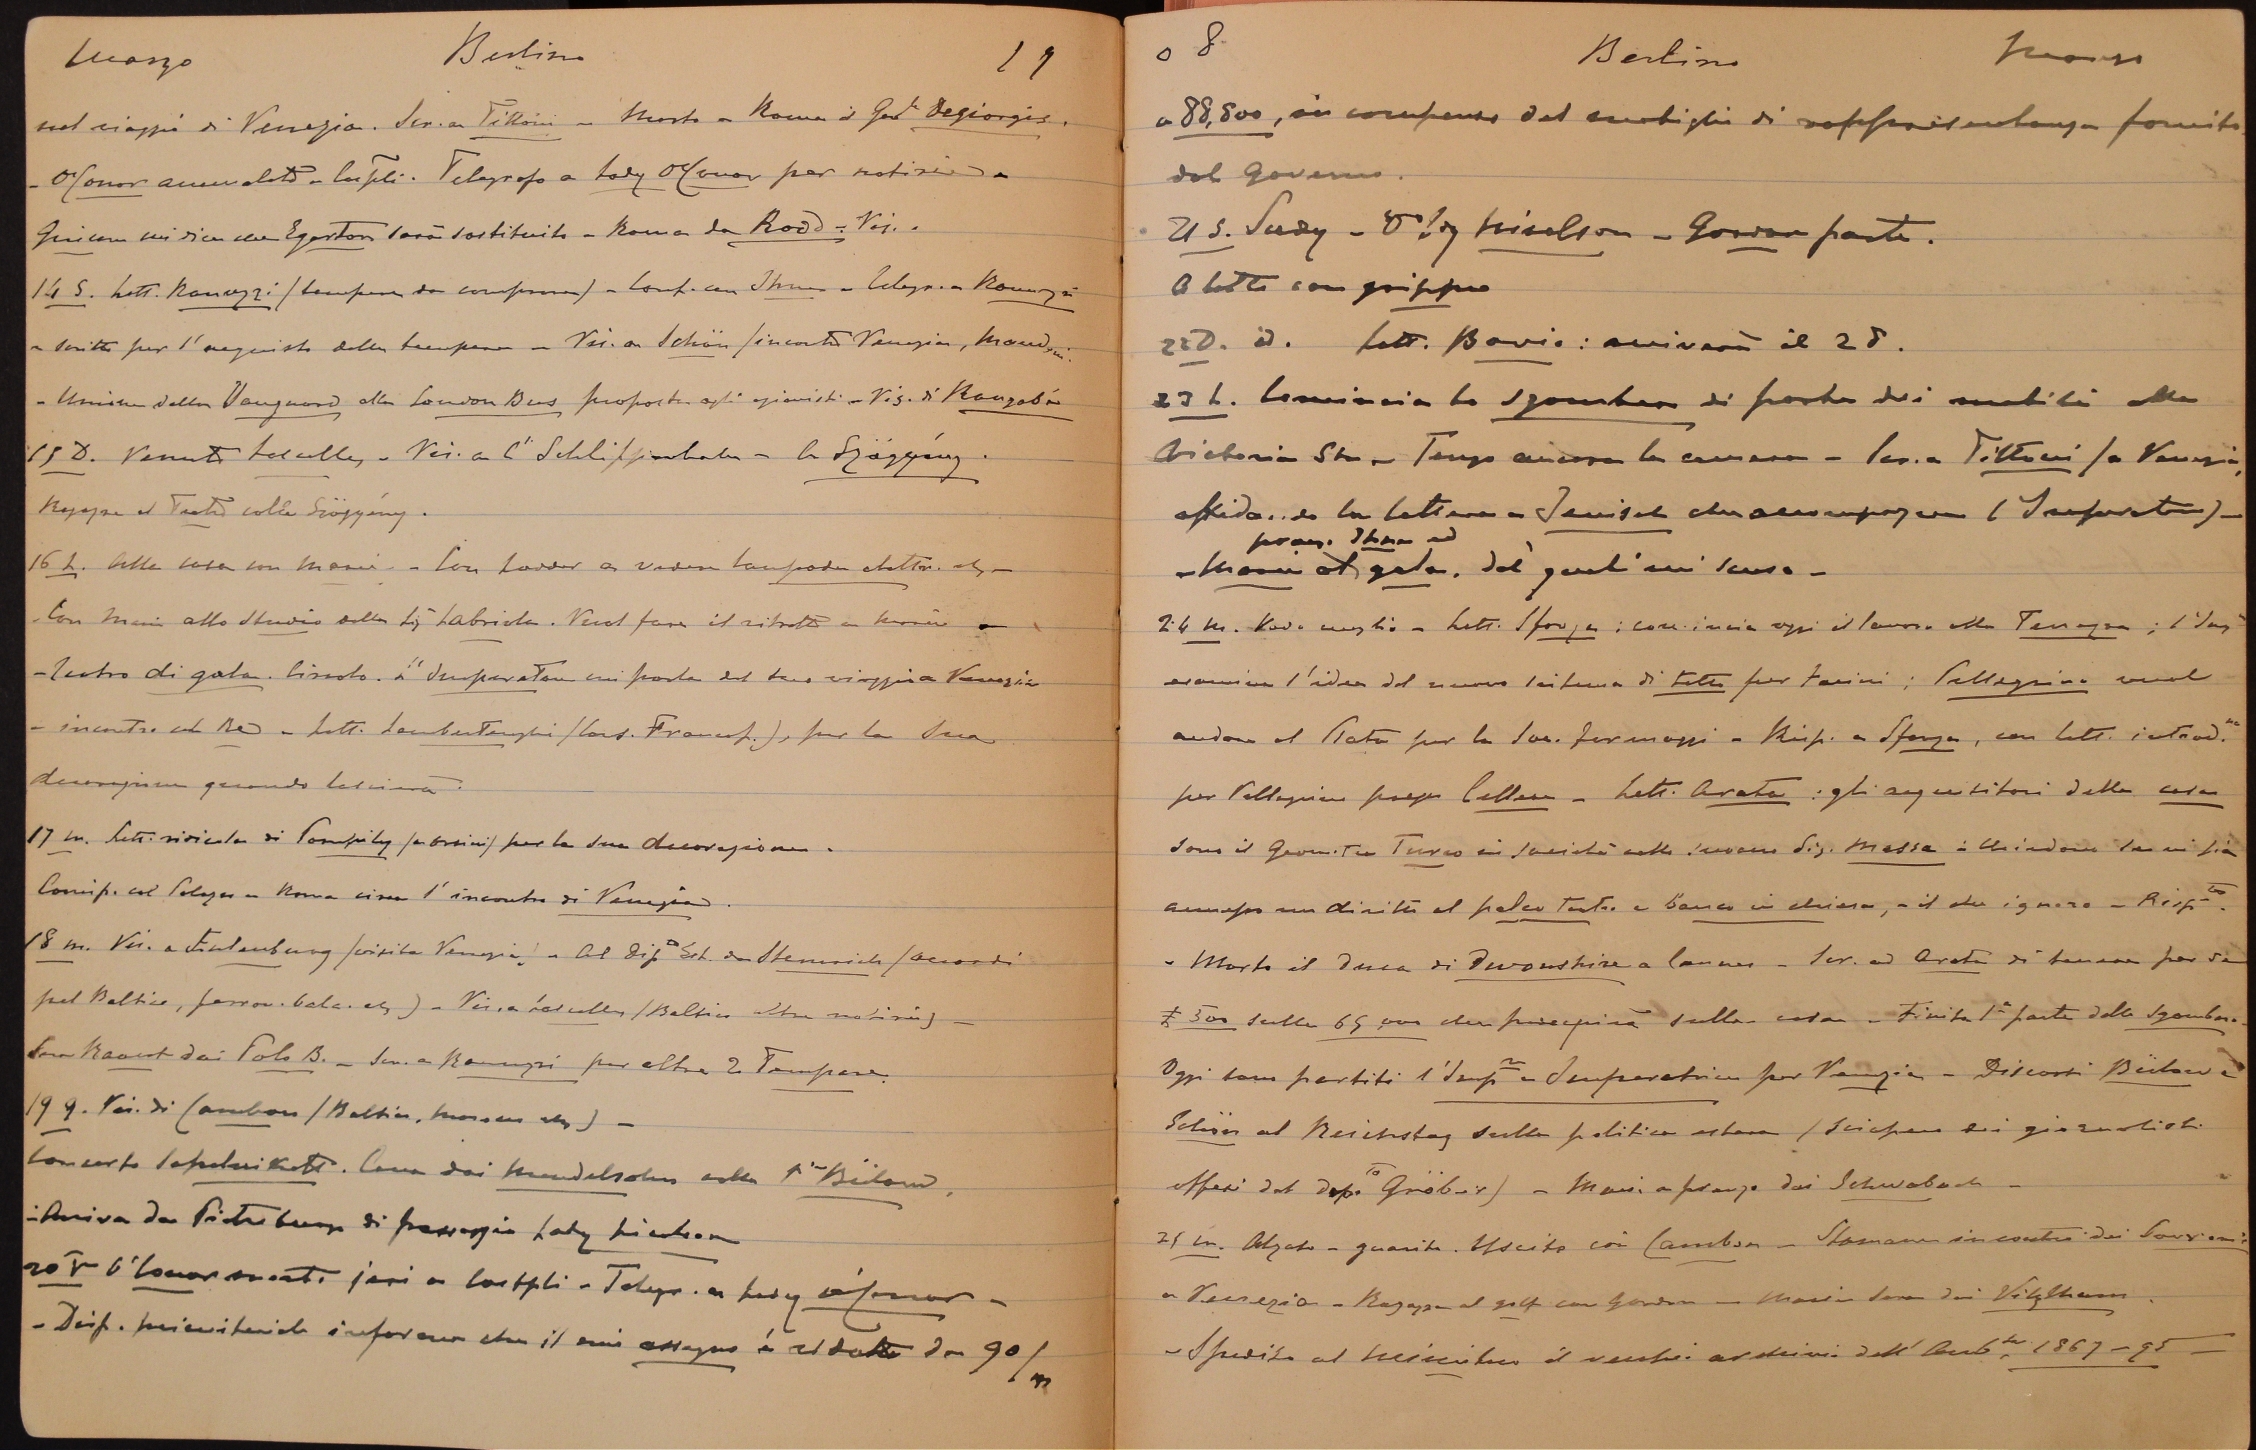 Marzo Berlino 19
nel viaggio di Venezia. Scr. a Tittoni – Morto a Roma il Gen.l Degiorgis.
– O'Conor ammalato a Cospli. Telegrafo a Lady O'Conor per notizie –
mi dice che Egerton sarà sostituito a Roma da Rodd – Vis. –
14 S. Lett. Ranuzzi (tempera da comprare) – Conf. con – Telegr. a Ranuzzi
– scritto per l'acquisto della tempera – Vis. a Schön (incontro Venezia,
– Unione della Vanguard alla London Bus proposta agli azionisti – Vis. di Rangabé
15 D. Lascelles – Vis. a C.ss Schlippenbach – la Szögyény.
Ragazze al Teatro colle Szögyény.
16 L. Alla casa con Maria – Con a vedere lampade elettr. etc –
– Con Maria allo studio della Sig. Labriola. Vuol fare il ritratto a Maria –
– Teatro di gala. Circolo. L'Imperatore mi parla del suo viaggio a Venezia
– incontro col Re – Lett. Lambertenghi (Cons. Francof.), per la sua
decorazione quando lascierà.
17 M. Lett. ridicola di Pompily (a Orsini) per la sua decorazione.
Corrisp. col Telegr. a Roma circa l'incontro di Venezia.
18 M. Vis. a Eulenburg (visita Venezia) – Al Dip.o Est. da Stemrich (accordi
pel Baltico, ferrov. balc. etc) – Vis. a Lascelles (Baltico altre notizie) –
Sera dai Polo B. – Scr. a Ranuzzi per altre 2 Tempere.
19 G. Vis. di Cambon (Baltico, Marocco etc) –
Concerto Sapelnikoff. Cena dai Mendelsohn colla P.ss Bülow.
– Arriva da Pietroburgo di passaggio Lady Nicolson
20 V O'Conor morto jeri a Cospli – Telegr. a Lady O'Conor –
– Disp. ministeriale informa che il mio assegno è ridotto da 90/m
08 Berlino Marzo
a 88,800, in compenso del mobiglio di rappresentanza fornito
dal Governo.
21 S. – Lady Nicolson – Gordon parte.
A letto con grippe
22 D. id. Lett. Bovio: arriverà il 28.
23 L. Comincia lo sgombero di parte dei mobili alla
Victoria Str – Tengo ancora la camera – Scr. a Tittoni (a Venezia,
affidando la lettera a Jenisch che accompagna l'Imperatore) –
pranz. ed
– Maria al gala. dal quale mi scuso –
24 M. Vado meglio – Lett. Sforza: comincia oggi il lavoro alla Terrazza; l'Ing.
esamina l'idea del nuovo sistema di tetto per; Pellegrino vuol
andare al Plata per la Soc. formaggi – Risp. a Sforza, con lett. introd.ne
per Pellegrino presso Cellere – Lett. Arata: gli acquisitori della casa
sono il Geometra Turco in società collo suocero Sig. Massa: chiedono se vi sia
annesso un diritto al palco Teatro e banco in chiesa, – il che ignoro – Risp.to
– Morto il Duca di Devonshire a Cannes – Scr. ad Arata di tenere per sè
£ 500 sulle 65,000 che percepirà sulla casa – Finita 1a parte dello sgombero
Oggi sono partiti l'Imp.re e Imperatrice per Venezia – Discorsi Bülow e
Schön al Reichstag sulla politica estera (sciopero dei giornalisti
offesi dal dep.to Gröber) – Maria a pranzo dai Schwabach –
25 M. Alzato – guarito. Uscito con Cambon – Stamane incontro dei Sovrani
a Venezia – Ragazze al golf con Gordon – Maria sera dai Vitzthum.
– Spedito al Ministero i vecchi archivi dell'Amb.ta 1867–95 –